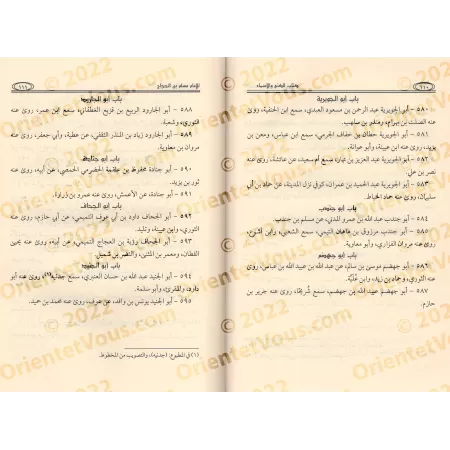 ١١٠ كتاب الكنى والأسماء
باب أبو الجويرية
٥٨٠ - أبو الجويرية عبد الرحمن بن مسعود العبدي، سمع ابن الحنفية، روى عنه
الصلت بن بهرام،
٥٨١ - أبو الجويرية حطان بن خفاف الجرمي، سمع ابن عباس، ومعن بن
يزيد، روى عنه ابن عيينة، وأبو عوانة.
٥٨٢ - أبو الجويرية عبد العزيز بن سمع أم سعيد، عن عائشة، روى عنه
نصر بن علي.
٥٨٣ - أبو الجويرية عبد الحميد بن عمران، كوفي نزل المدينة، عن حماد بن أبي
سليمان، روى عنه حماد الخياط.
باب أبو جندب
٥٨٤ - أبو جندب عبد الله بن عمرو عن مسلم بن جندب.
٥٨٥ - أبو جندب مرزوق بن ماهان التيمي، سمع الشعبي، روى
عنه مروان الفزاري، وأبو معاوية.
باب أبو جهضم
٥٨٦ - أبو جهضم موسى بن سالم، عن عبد الله بن عبيد الله بن عباس، روى
عنه الثوري، وحماد بن زيد، وابن علية.
٥٨٧ - أبو جهضم عبيد الله بن جهضم، سمع روى عنه جرير بن
حازم.
للإمام مسلم بن الحجاج ١١١
باب أبو الجارود
٥٨٨ - أبو الجارود الربيع بن قزيع الغطفاني، سمع ابن عمر، روى عنه
الثوري، وشعبة.
٥٨٩ - أبو الجارود زياد بن المنذر الثقفي، عن عطية، وأبي جعفر، روى عنه
مروان بن معاوية.
باب أبو جنادة
٥٩٠ - أبو جنادة محفوظ بن علقمة الحضرمي الحمصي، عن أبيه، روى عنه
ثور بن يزيد.
٥٩١ - أبو جنادة، عن الأعمش، روى عنه عمرو بن زرارة.
باب أبو الجحاف
٥٩٢ - أبو الجحاف داود بن أبي عوف التميمي، عن أبي حازم، روى عنه
الثوري، وابن عيينة،
٥٩٣ - أبو الجحاف رؤبة بن العجاج التميمي، عن أبيه، روى عنه يحيى
القطان، ومعمر بن المثنى، والنضر بن شميل.
باب أبو الجنيد
٥٩٤ - أبو الجنيد عبد الله بن حسان العنبري، سمع جدتيه(١)، روى عنه أبو
داود، والمقرئ، وأبو سلمة.
٥٩٥ - أبو الجنيد يونس بن وافد، عن عوف، روى عنه محمد بن حميد.
(١) في المطبوع: (جدتيه)، والتصويب من المخطوط.
© 2022
OrientetVous.com